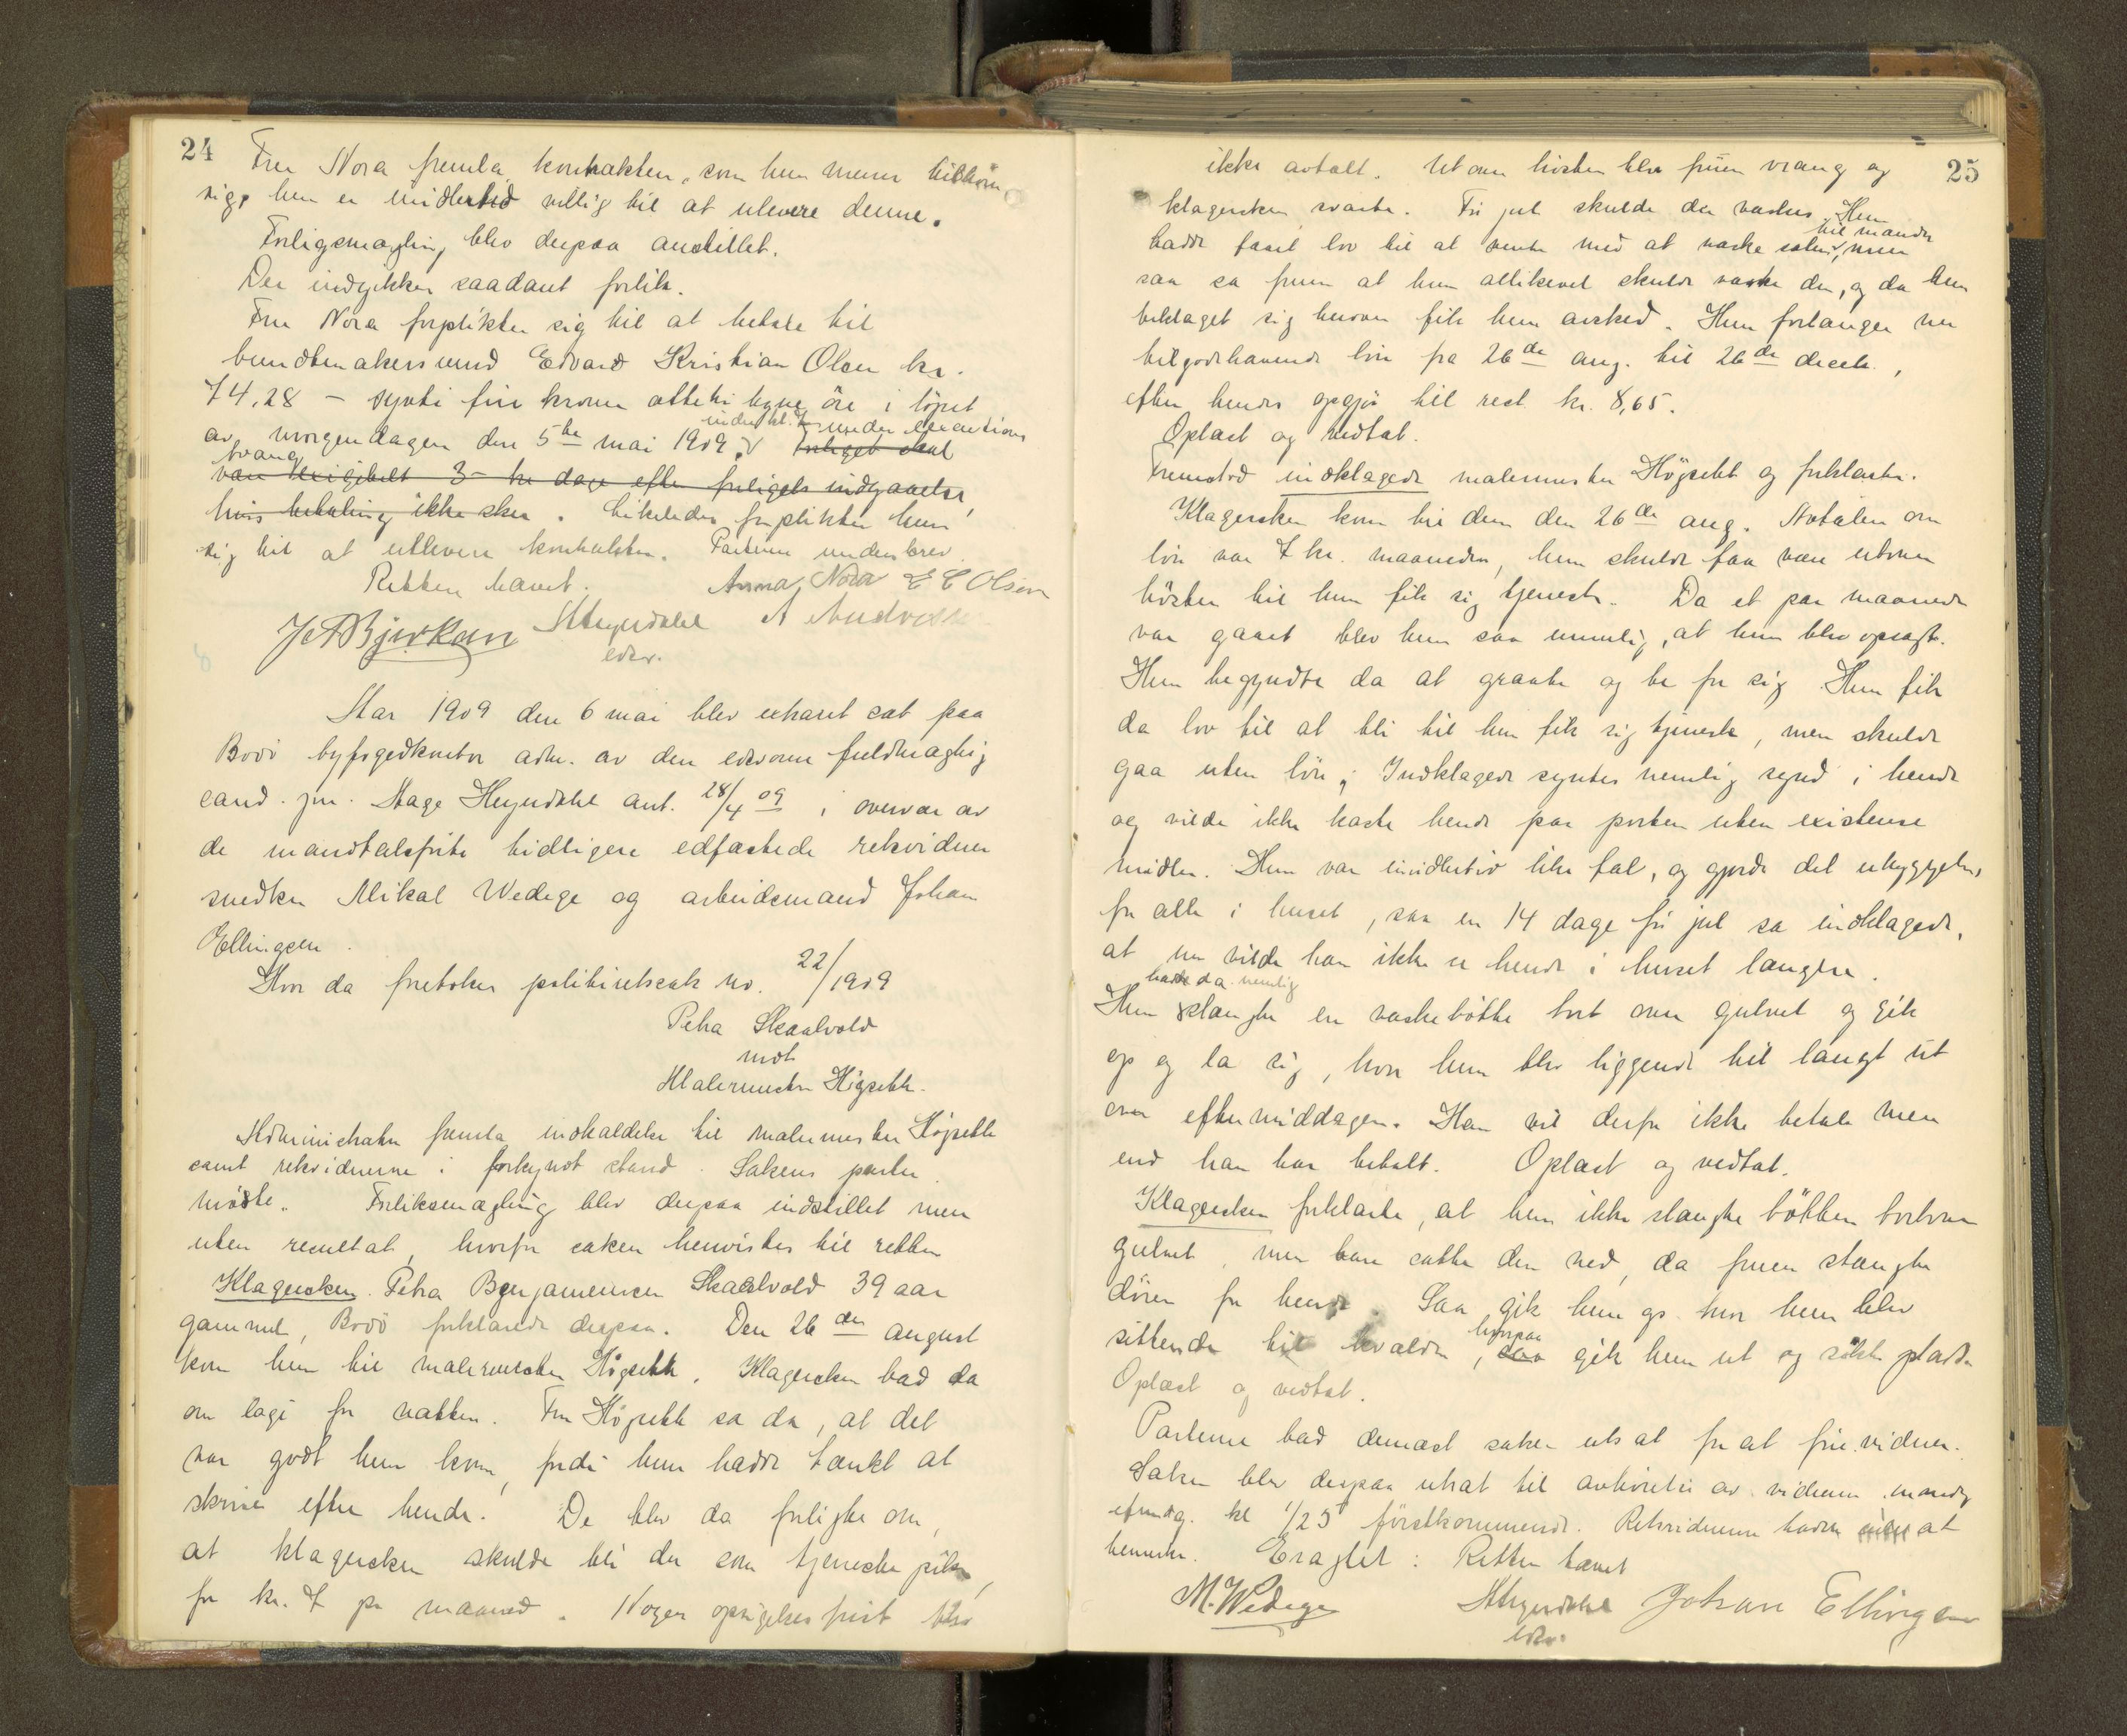 24
Fru Nora fremla kontrakten, som hun mener tilkom
sig, hun er imidlertid villig til at utlevere denne.
Forligsmægling blev derpaa anstillet.
Der indgikkes saadant forlik.
Fru Nora forplikter sig til at betale til
bundtmakersvend Edvard Kristian Olsen kr.
74,28 – sytti fire kroner otteti tyve öre i löpet
av morgendagen den 5te mai 1909, under executions
tvang Forliget skal
være exigibelt 3 – tre dage efter forligets indgaaelse,
hvis betaling ikke sker. Likeledes forplikter hun
sig til at utlevere kontrakten. Parterne underskrev.
Retten hævet. Anna Nora E C Olsen
J A Bjerkan SHeyerdahl A Andresen
edsv.
Aar 1909 den 6 mai blev extraret sat paa
Bodö byfogedkontor adm. av den edsvorne fuldmægtig
cand. jur. Aage Heyerdahl ant. 28/4 09 i overvær av
de mandtalsförte tidligere edfæstede retsvidner
snedker Mikal Wedege og arbeidsmand Johan
Ellingsen.
Hvor da foretokes politiretssak no. 22/1909
Petra Skaalvold
mot
Malermester Högseth.
Administrator fremla indkaldelse til malermester Högseth
samt retsvidnerne i forkyndt stand. Sakens parter
mötte. Forliksmægling blev derpaa indstillet men
uten resultat, hvorfor saken henvistes til retten
Klagersken. Petra Benjamensen Skaalvold 39 aar
gammel, Bodö forklarede derpaa. Den 26de august
kom hun til malermester Högseth. Klagersken bad da
om logi for natten. Fru Högseth sa da, at det
var godt hun kom, fordi hun hadde tænkt at
skrive efter hende. De blev da forligte om,
at klagersken skulde bli der som tjenestepike,
for kr. 7 pr maaned. Nogen opsigelsesfrist blev
25
ikke avtalt. Utover hösten blev fruen vrang og
klagersken svarte. Før jul skulde der vaskes. Hun
hadde faaet lov til at vente med at vaske salen til mandag, men
saa sa fruen at hun allikevel skulde vaske den, og da hun
beklaget sig herover fik hun avsked. Hun forlanger nu
tilgodehavende lön fra 26de aug. til 26de decbr.,
efter hendes opgjör til rest kr. 8,65.
Oplæst og vedtat.
Fremstod indklagede malermester Högseth og forklarte.
Klagersken kom til dem den 26de aug. Avtalen om
lön var 7 kr. maaneden, hun skulde faa være utover
hösten til hun fik sig tjeneste. Da et par maaneder
var gaaet blev hun saa umulig, at hun blev opsagt.
Hun begyndte da at graate og be for sig. Hun fik
da lov til at bli til hun fik sig tjeneste, men skulde
gaa uten lön; Indklagede syntes nemlig synd i hende
og vilde ikke kaste hende paa porten uten existense
midler. Hun var imidlertid like fæl, og gjorde det uhyggelig
for alle i huset, saa en 14 dage för jul sa indklagede,
at nu vilde han ikke se hende i huset længere.
Hun hadde da nemlig slængte en vaskebötte bort over gulvet og gik
op og la sig, hvor hun blev liggende til langt ut
over eftermiddagen. Han vil derfor ikke betale mer
end han har betalt. Oplæst og vedtat.
Klagersken forklarte, at hun ikke slængte bötten bortover
gulvet, men bare satte den ned, da fruen stængte
dören for hende. Saa gik hun op hvor hun blev
sittende til kvælden, hvorpaa gik hun ut og sökte plads.
Oplæst og vedtat.
Parterne bad dernæst saken utsat for at före vidner.
Saken blev derpaa utsat til avhörelse av vidnerne mandag
eftmdg. kl 1/2 5 förstkommende. Retsvidnerne hadde intet at
bemerke. Eragtet: Retten hævet
M. Wedege AHeyerdahl Johan Ellingsen
edsv.